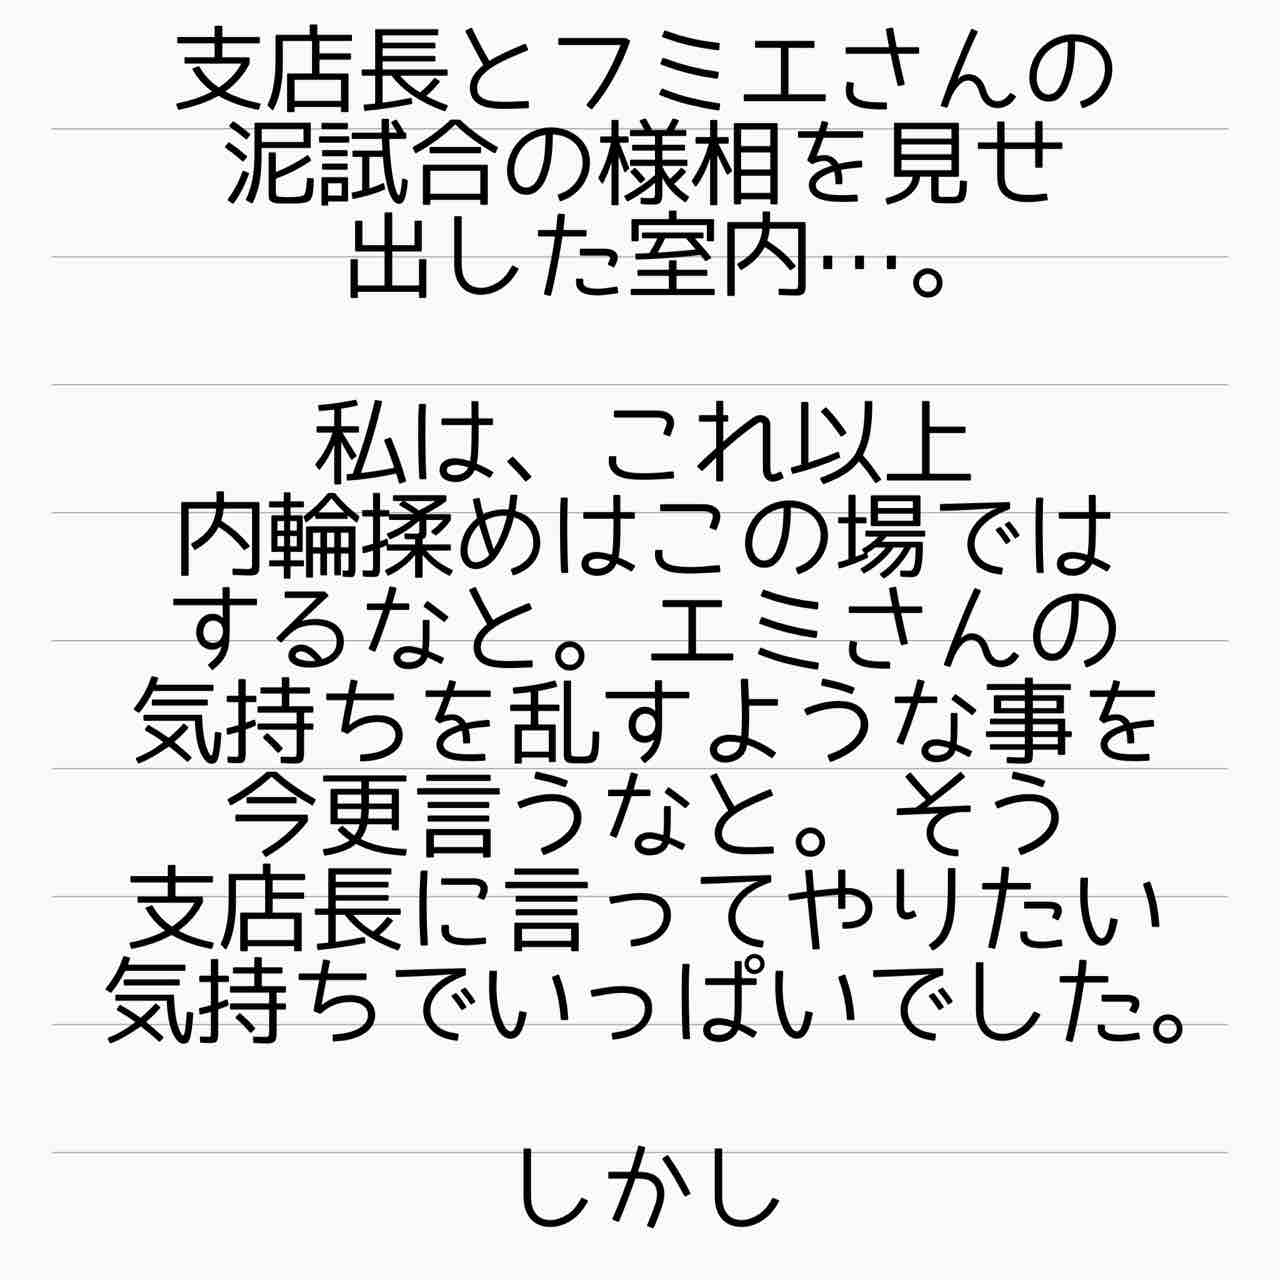 支店長とフミエさんの
泥試合の様相を見せ
出した室内…。
私は、これ以上
内輪揉めはこの場では
するなと。エミさんの
気持ちを乱すような事を
今更言うなと。そう
支店長に言ってやりたい
気持ちでいっぱいでした。
しかし